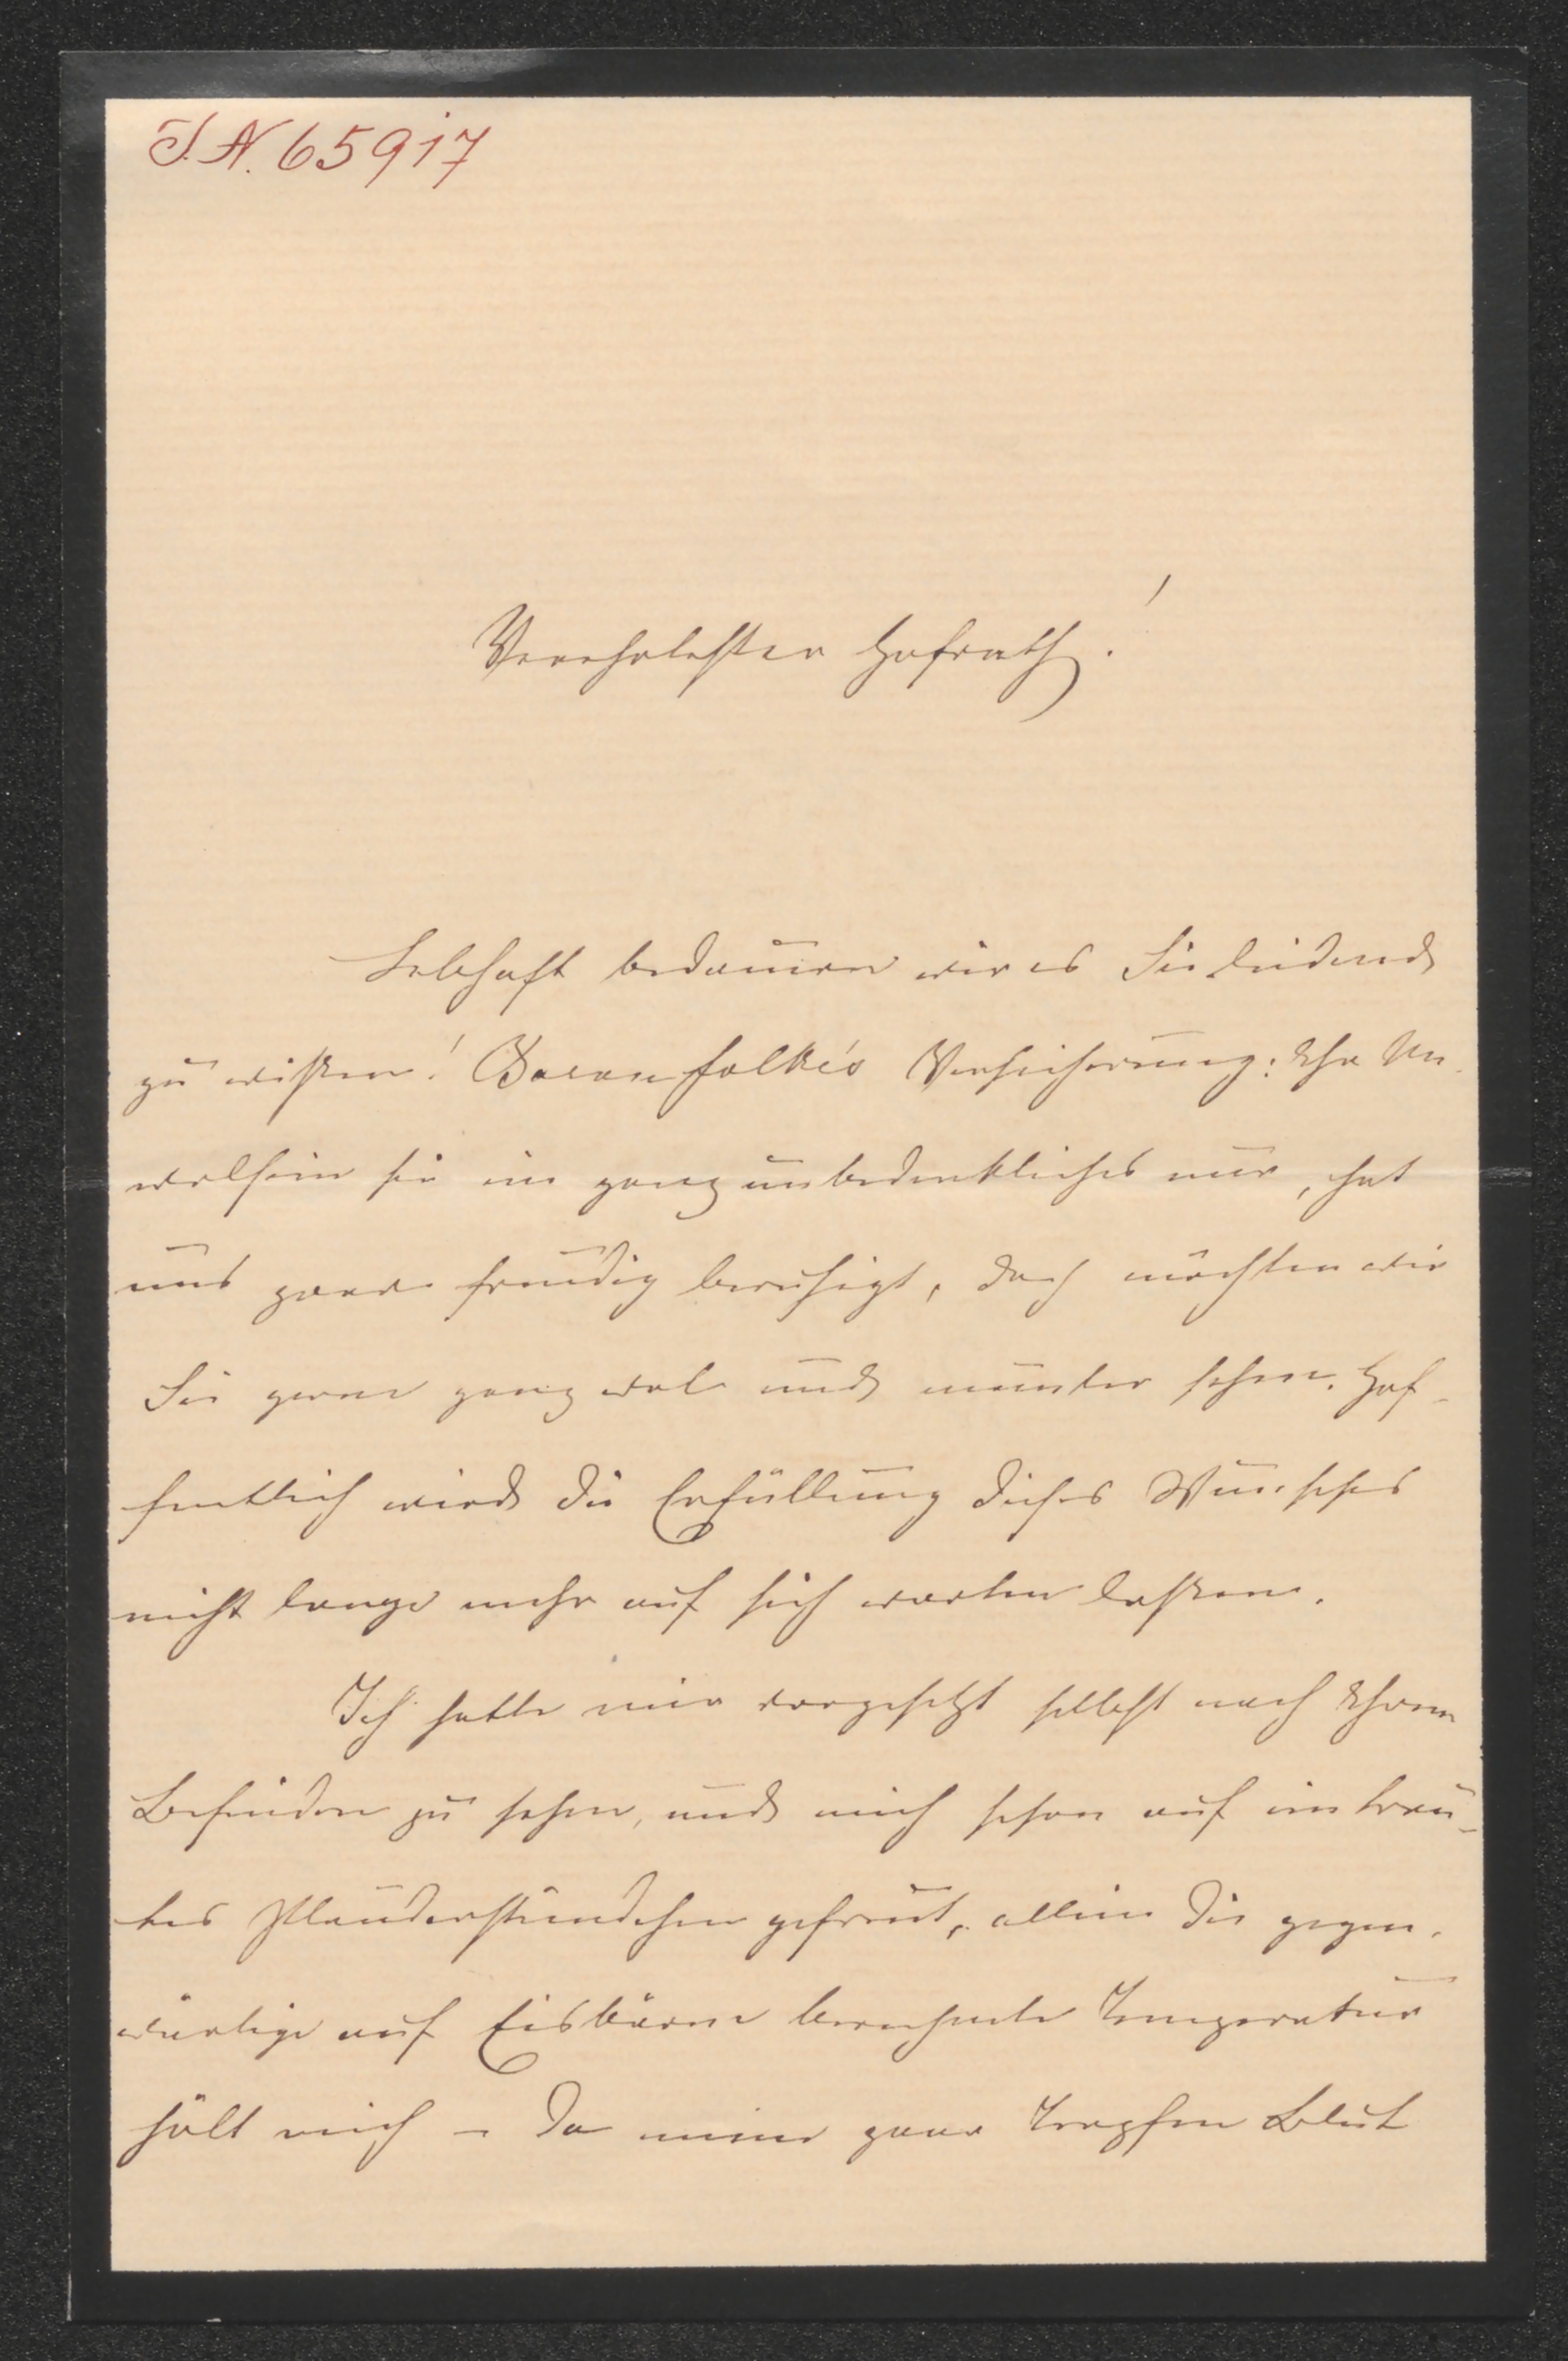 I.N. 65917
Verehrtester Hofrath!
Lebhaft bedauern wir es Sie leidend
zu wissen! Baron Falke's Versicherung: Ihr Un-
wolsein sei ein ganz unbedenkliches nur, hat
uns zwar freudig beruhigt, doch möchten wir
Sie gerne ganz wol und munter sehen. Hof-
fentlich wird die Erfüllung dieses Wunsches
nicht lange mehr auf sich warten lassen.
Ich hatte mir vorgesetzt selbst nach Ihrem
Befinden zu sehen, und mich schon auf ein trau-
tes Plauderstündchen gefreut, allein die gegen-
wärtige auf Eisbären berechnete Temperatur
hält mich – da meine paar Tropfen Blut